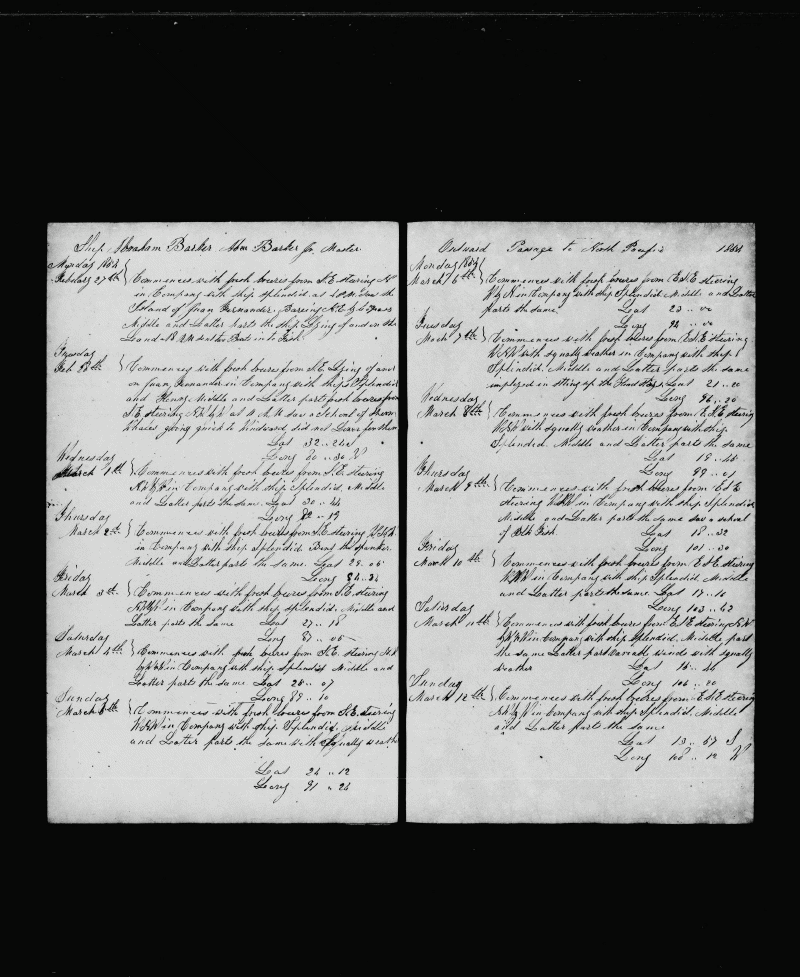 Ship Abraham Barker Abm Barker Jr Master
Monday 1854
February 27th Commences with fresh breezes from S.E. steering
in Company with ship Splendid at 4 P.M. saw the
Island of Juan Fernander, Bearing
Middle and Latter parts the ship Lying of and on the
Land
Tuesday
Feb 28th Commences with fresh breezes from S.E. Lying of and
on Juan Fernander in Company with ships Splendid
and Henry Middle and Latter part fresh breezes from
S.E. steering at 11 A.M. saw a School of Sperm
Whales going quick to Windward, did not Lower for them
Lat 32 .. 24
Wednesday Long 80 .. 30 W
March 1th Commences with fresh breezes from S.E. steering
in Company with ship Splendid, Middle
and Latter parts the same. Lat 30 .. 44
Thursday Long 82 .. 19
March 2th Commences with fresh breezes from S.E. steering
in Company with ship Splendid. Bent the spanker.
Middle and Latter parts the same. Lat 29 .. 05
Friday Long 84 .. 34
March 3th Commences with fresh breezes from S.E. steering
in Company with ship Splendid. Middle and
Latter parts the same Lat 27 .. 18
Saturday Long 87 .. 05
March 4th Commences with fresh breezes from S.E. steering
in Company with ship Splendid Middle and
Latter parts the same Lat 25 .. 07
Sunday Long 89 .. 10
March 5th Commences with fresh breezes from S.E. steering
in Company with ship Splendid, Middle
and Latter parts the same with Squally weather
Lat 24 .. 12
Long 91 .. 24
Outward Passage to North Pacific 1854
Monday 1854
March 6th Commences with fresh breezes from E.S.E steering
in Company with ship Splendid Middle and Latter
parts the same. Lat 23 .. 00
Tuesday Long 94 .. 00
March 7th Commences with fresh breezes from E.S.E steering
with squally weather in Company with ship
Splendid. Middle and Latter parts the same
employed in Lat 21 .. 20
Wednesday Long 96 .. 30
March 8th Commences with fresh breezes from E.S.E steering
with squally weather in Company with ship
Splendid. Middle and Latter parts the same
Lat 19 .. 45
Thursday Long 99 .. 01
March 9th Commences with fresh breezes from E.S.E
steering in Company with ship Splendid
Middle and Latter parts the same saw a school
of Blk Fish. Lat 18 .. 32
Friday Long 101 .. 30
March 10th Commences with fresh breezes from E.S.E. steering
in Company with ship Splendid. Middle
and Latter parts the same. Lat 17 .. 10
Saturday Long 103 .. 43
March 11th Commences with fresh breezes from E.S.E steering
in Company with ship Splendid, Middle part
the same Latter part variable winds with squally
weather Lat 15 .. 40
Sunday Long
March 12th Commences with fresh breezes from E.S.E steering
in Company with ship Splendid. Middle
and Latter parts the same
Lat 13 .. 57 S
Long 108 .. 12 W